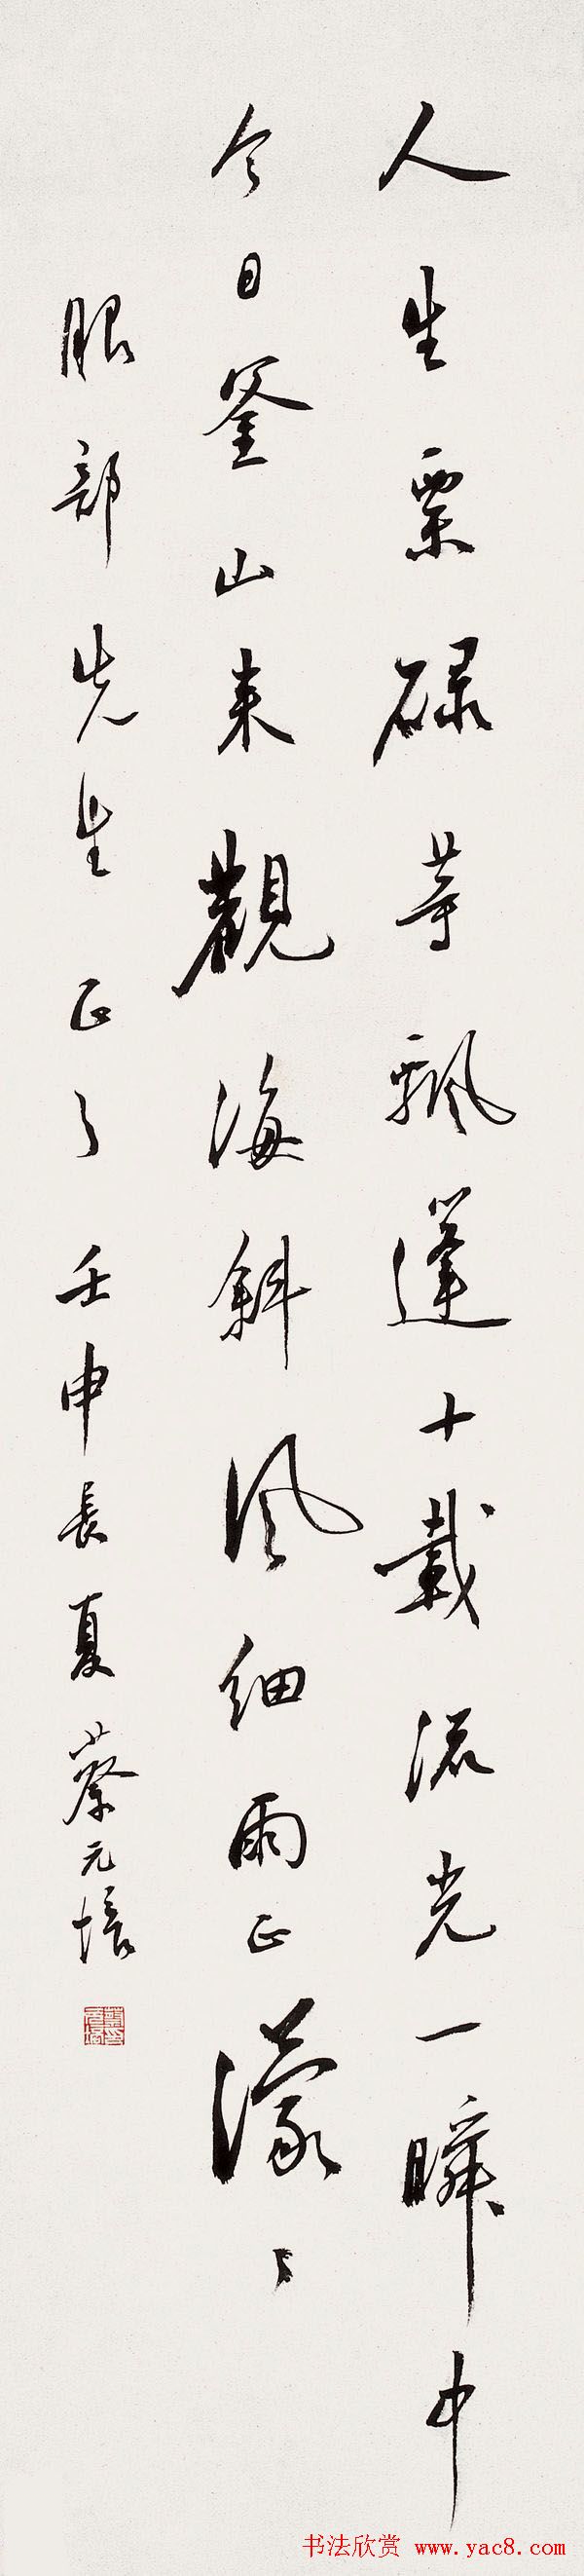 人生栗碌等飄蓬十載流光一瞬中
今日釜山来觀海斜風細雨正濛〻
服部先生 正之 壬申長夏 蔡元培
书法欣赏 www.yac8.com